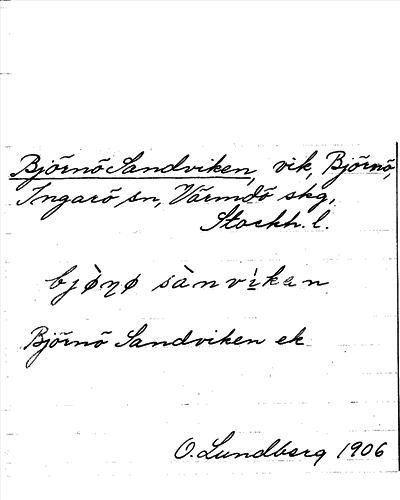 Björnö Sandviken, vik, Björnö,
Ingarö sn, Värmdö skg,
Stockh. l.
bjǿ̀ŋø sànvìkan
Björnö Sandviken ek
O. Lundberg 1906